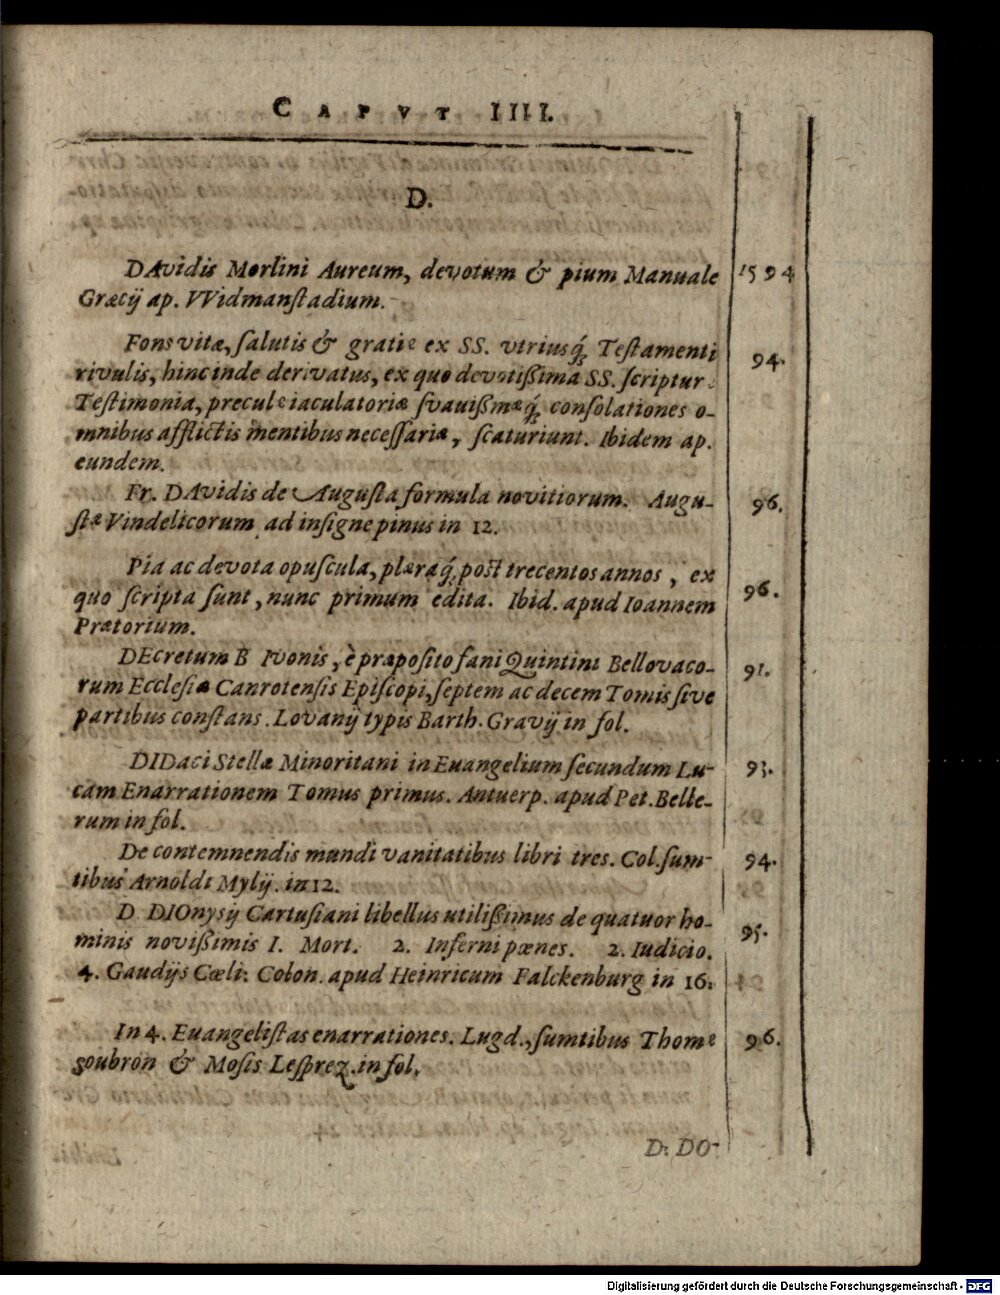 CAPVT IIII.
D.
DAvidis Morlini Aureum, devotum & pium Manuale 1594
Græcij ap. VVidmanſtadium.
Fons vitæ, ſalutis & gratie ex SS. vtriusq́; Teſtamenti 94.
rivulis, hinc inde derivatus, ex quo devotißima SS. ſcriptur.
Teſtimonia, precule iaculatoriæ ſvavißmæq́; conſolationes o-
mnibus afflictis mentibus neceſſariæ, ſcaturiunt. Ibidem ap.
eundem.
Fr. DAvidis de Auguſta formula novitiorum. Augu- 96.
ſtæ Vindelicorum ad inſigne pinus in 12.
Pia ac devota opuſcula, plæraq́; post trecentos annos, ex 96.
quo ſcripta ſunt, nunc primum edita. Ibid. apud Ioannem
Prætorium.
DEcretum B Ivonis, è præpoſito fani Quintini Bellovaco- 91.
rum Eccleſiæ Canrotenſis Epiſcopi, ſeptem ac decem Tomis ſive
partibus conſtans. Lovanij typis Barth. Gravij in fol.
DIDaci Stellæ Minoritani in Euangelium ſecundum Lu- 93.
cam Enarrationem Tomus primus. Antuerp. apud Pet. Belle-
rum in fol.
De contemnendis mundi vanitatibus libri tres. Col. ſum- 94.
tibus Arnoldi Mylij. in 12.
D. DIOnyſij Cartuſiani libellus utilißimus de quatuor ho- 95.
minis novißimis I. Mort. 2. Inferni pœnes. 2. Iudicio.
4. Gaudijs Cæli. Colon. apud Heinricum Falckenburg in 16.
In 4. Euangeliſtas enarrationes. Lugd., ſumtibus Thome 96.
soubron & Moſis Leſprez. in fol.
D. DO-
Digitalisierung gefördert durch die Deutsche Forschungsgemeinschaft - DFG